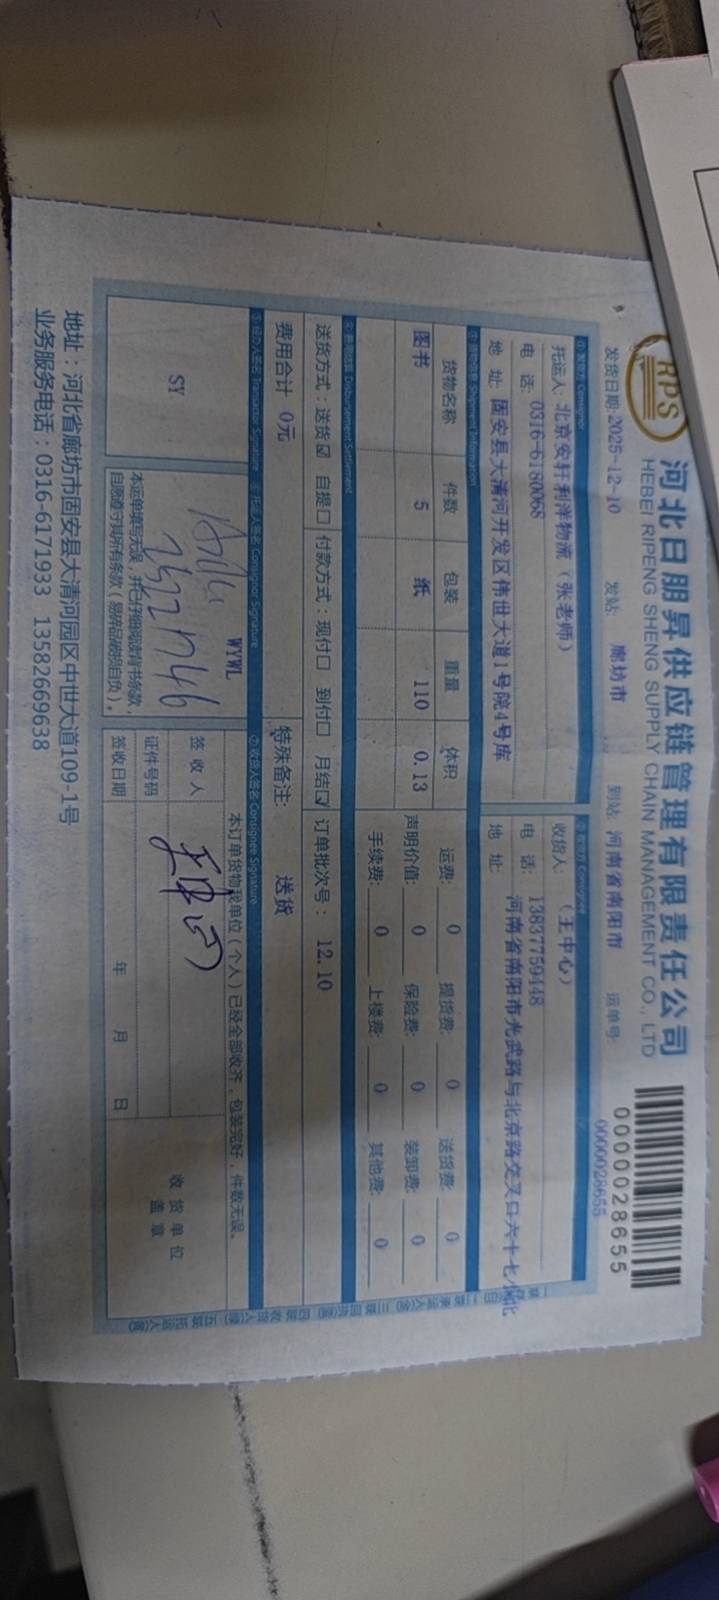 RPS
河北日朋昇供应链管理有限责任公司
HEBEI RIPENG SHENG SUPPLY CHAIN MANAGEMENT CO., LTD
0000028655
发货日期:2025-12-10 发站: 廊坊市 到站: 河南省南阳市 运单号: 0000028655
①发货方 Consignor ②收货方 Consignee
托运人: 北京安轩利洋物流（张老师） 收货人: （王中心）
电 话: 0316-6180068 电 话: 13837759448
地 址: 固安县大清河开发区伟世大道1号院4号库 地 址: 河南省南阳市光武路与北京路交叉口六十七小
③货物信息 Shipment Information
货物名称 件数 包装 重量 体积 运费: 0 提货费: 0 送货费: 0
图书 5 纸 110 0.13 声明价值: 0 保险费: 0 装卸费: 0
手续费: 0 上楼费: 0 其他费: 0
④费用结算 Disbursement Settlement
送货方式：送货☑ 自提□ 付款方式：现付□ 到付□ 月结☑ 订单批次号： 12.10
费用合计 0元 特殊备注: 送货
⑤经办人签名 Transactor Signature ⑥托运人签名 Consignor Signature ⑦收货人签名 Consignee Signature
SY
WYWL
本运单填写无误，并已仔细阅读背书条款，
自愿遵守其所有条款（易碎品破损自负）。
本订单货物我单位（个人）已经全部收齐，包装完好，件数无误。
签 收 人
证件号码
签收日期 年 月 日
收货单位
盖章
地址：河北省廊坊市固安县大清河园区中世大道109-1号
业务服务电话：0316-6171933 13582669638